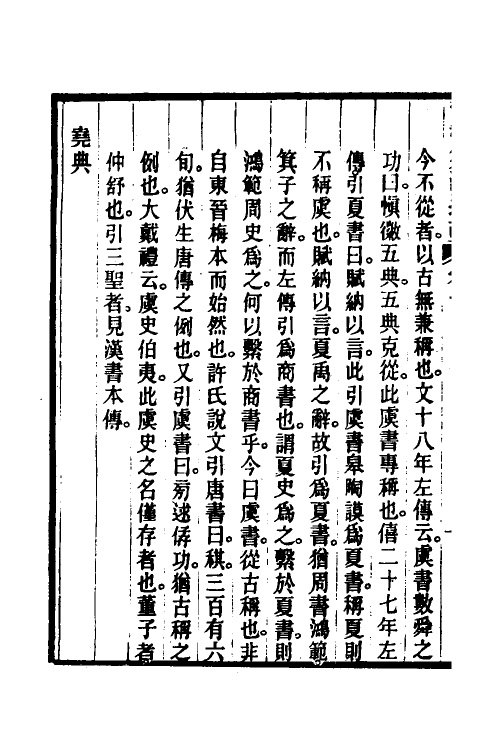 今不從者。以古無兼稱也。文十八年左傳云。虞書數舜之
功曰愼徽五典。五典克從。此虞書專稱也。僖二十七年左
傳引夏書曰。賦納以言。此引虞書皋陶謨爲夏書。稱夏則
不稱虞也。賦納以言。夏禹之辭。故引爲夏書。猶周書鴻範
箕子之辭。而左傳引爲商書也。謂夏史爲之。繫於夏書。則
鴻範周史爲之。何以繫於商書乎。今曰虞書。從古稱也。非
自東晉梅本而始然也。許氏說文引唐書曰。稘。三百有六
旬。猶伏生唐傳之例也。又引虞書曰。旁逑孱功。猶古稱之
例也。大戴禮云。虞史伯夷。此虞史之名僅存者也。董子者
仲舒也。引三聖者。見漢書本傳。
堯典